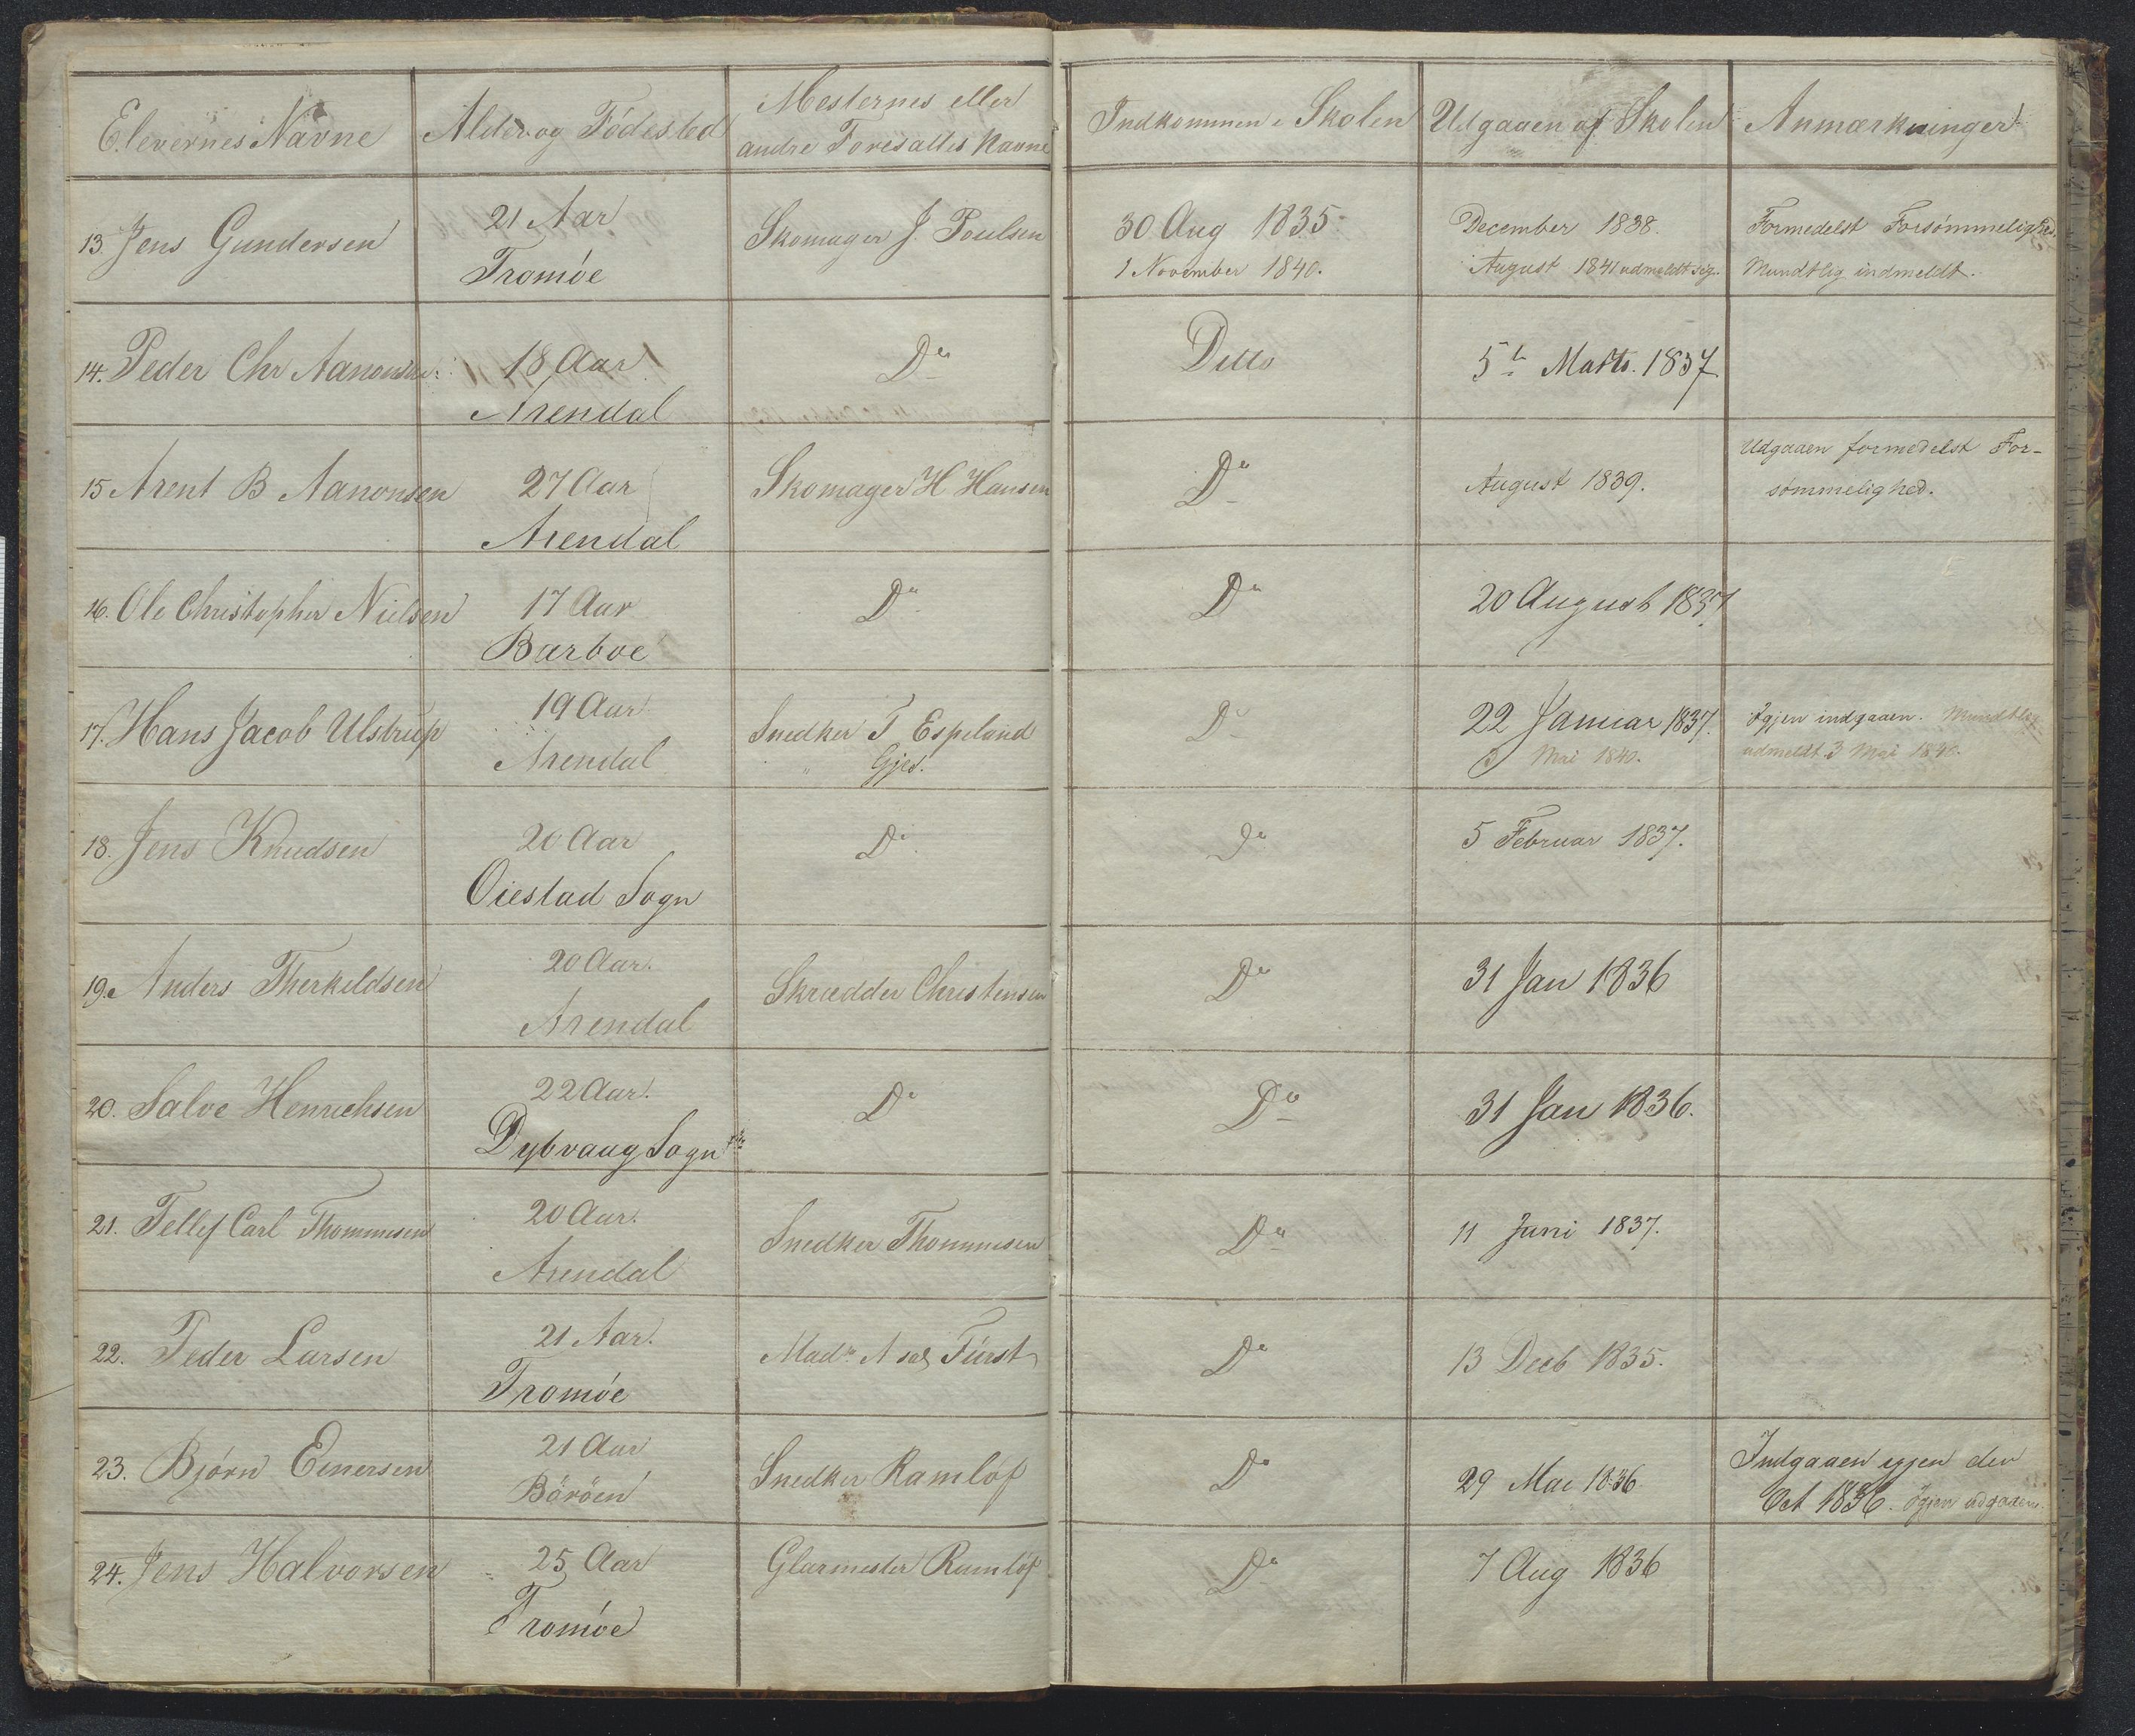 Elevernes Navne | Alder og Födested | Mesternes eller andre Foresattes Navne | Indkommen i Skolen | Udgaaen af Skolen | Anmærkninger
13. Jens Gundersen | 21 Aar | Skomager J. Poulsen | 30 Aug 1835 | December 1838. | Formedelst Forsömmelighed.
Tromöe | 1 November 1840. | August 1841 udmeldt sig. | Mundtlig indmeldt.
14. Peder Chr Aanonsen | 18 Aar | Do | Ditto | 5te Marts. 1837.
Arendal
15 Arent B Aanonsen | 27 Aar | Skomager H Hansen | Do | August 1839. | Udgaaen formedelst For-
Arendal | sömmelighed.
16. Ole Christopher Nielsen | 17 Aar | Do | Do | 20 August 1837
Barboe
17. Hans Jacob Ulstrup | 19 Aar | Snedker T Espeland | Do | 22 Januar 1837. | Igjen indgaaen. Mundtlig
Arendal | " Gjes. | 3 Mai 1840. | udmeldt 3 Mai 1840.
18. Jens Knudsen | 20 Aar | Do | Do | 5 Februar 1837.
Oiestad Sogn
19. Anders Therkeldsen | 20 Aar. | Skrædder Christensen | Do | 31 Jan 1836
Arendal
20. Salve Henrichsen | 22 Aar. | Do | Do | 31 Jan 1836.
Dybvaag Sogn
21. Tellef Carl Thommesen | 20 Aar. | Snedker Thommesen | Do | 11 Juni 1837.
Arendal
22. Peder Larsen | 21 Aar. | Mad. A sal Fürst | Do | 13 Decb 1835.
Tromöe
23. Björn Einersen | 21 Aar | Snedker Ramlöf | Do | 29 Mai 1836. | Indgaaen igjen den
Böröen | Oct 1836. Igjen udgaaen.
24. Jens Halvorsen | 25 Aar | Glarmester Ramlöf | Do | 7 Aug 1836
Tromöe